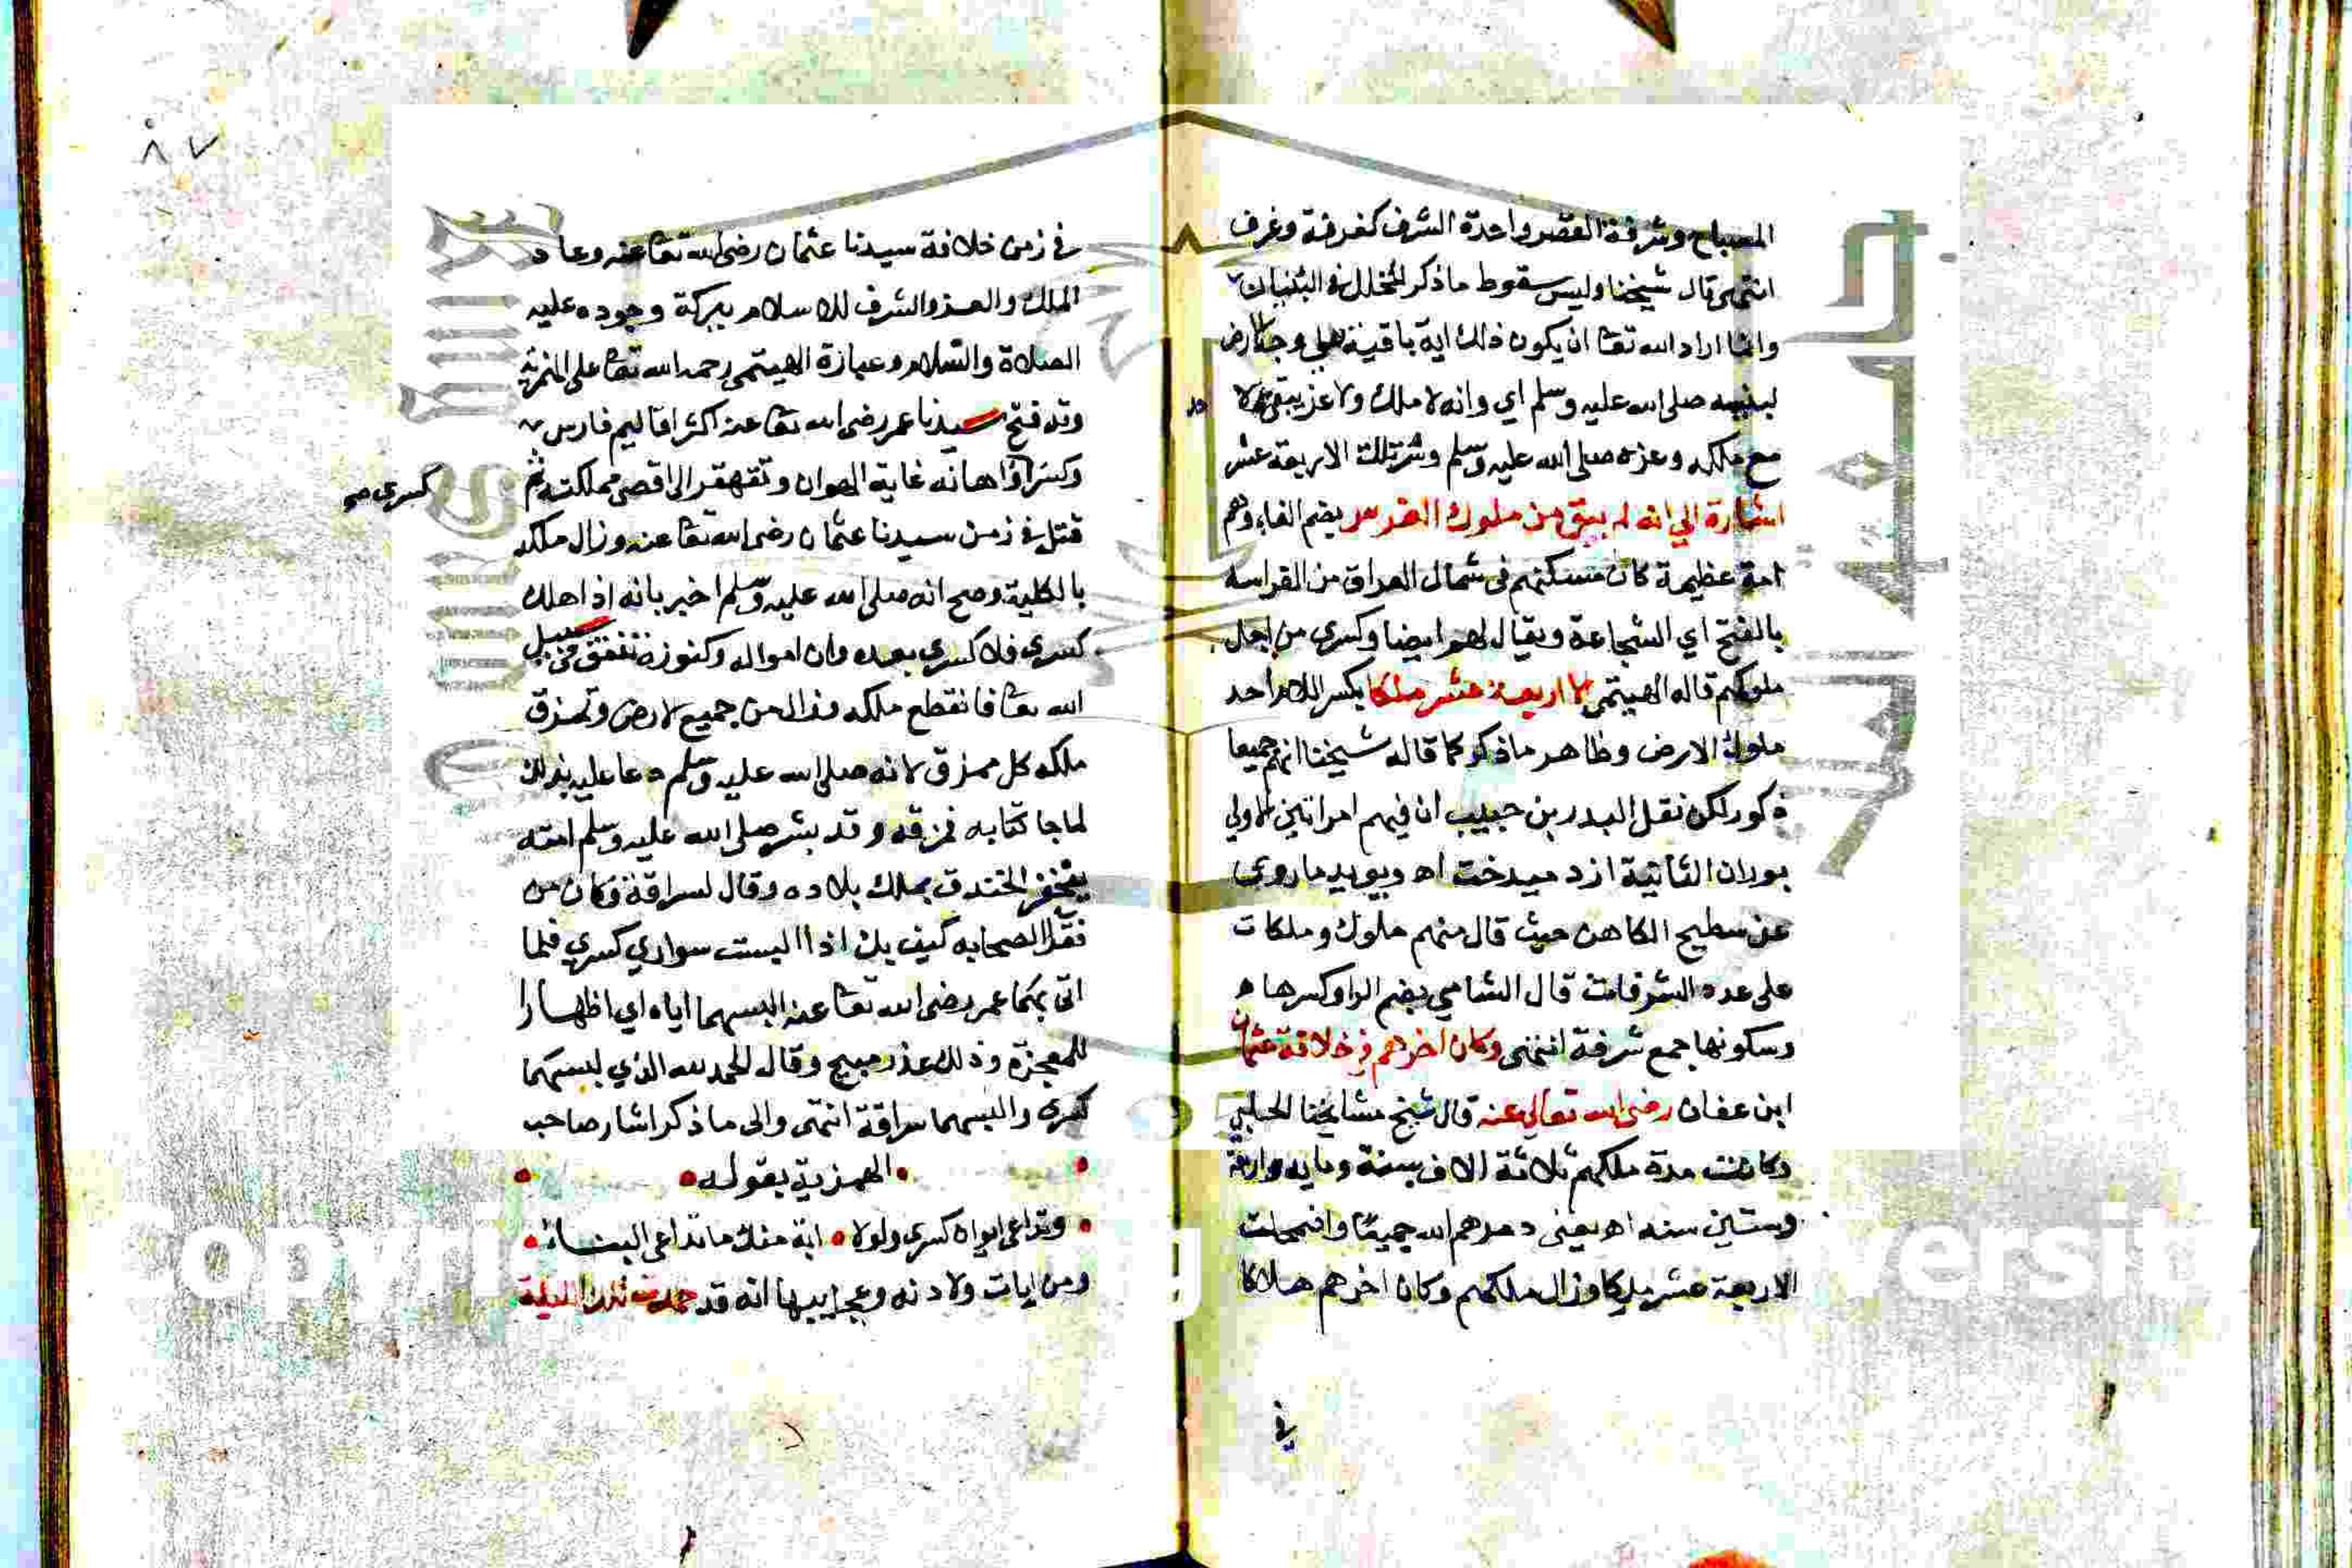 المصباح وشرفة القصر واحدة الشرف كغرفة وغرف
انتهى قال شيخنا وليس سقوط ماذكر لخلل في البنيان
وانما اراد الله تعا ان يكون ذلك اية باقية على وجه الارض
لنبيه صلى الله عليه وسلم اي وانه لا ملك ولا عز يبقى
مع ملكه وعزه صلى الله عليه وسلم وشرتلك الاربعة عشر
اشارة الي انه لم يبق من ملوك الفرس بضم الفاء وهم
امة عظيمة كان مسكنهم فى شمال العراق من الفراسه
بالفتح اي الشجاعة ويقال لهم ايضا وكسرى من اجل
ملوكهم قاله الهيتمى الا اربعة عشر ملكا بكسر اللام احد
ملوك الارض وظاهر ماذكر كما قاله شيخنا انهم جميعا
ذكور لكن نقل البدر بن حبيب ان فيهم امراتين الاولي
بوران الثانية ازد ميدخت اه ويويد ماروى
عن سطيح الكاهن حيث قال منهم ملوك وملكات
على عدد الشرفات قال الشامي بضم الرا وكسرها
وسكونها جمع شرفة انتهى وكان اخرهم في خلافة عثمان
ابن عفان رضى الله تعالى عنه قال شيخ مشايخنا الحلبي
وكانت مدة ملكهم ثلاثة الاف سنة ومايه واربعة
وستين سنه اه يعنى دمرهم الله جميعا واضمحلت
الاربعة عشر ملكا وزال ملكهم وكان اخرهم هلاكا
في
٨٧
في زمن خلافة سيدنا عثمان رضى الله تعا عنه وعاد
الملك والعز والشرف للاسلام ببركة وجوده عليه
الصلاة والسلام وعبارة الهيتمى رحمه الله تعا على الهمزية
وقد فتح سيدنا عمر رضى الله تعا عنه اكثر اقاليم فارس
وكسر اهانه غاية الهوان وتقهقر الى اقصى مملكته ثم
كسرى صح
قتل في زمن سيدنا عثمان رضى الله تعا عنه وزال ملكه
بالكلية وصح انه صلى الله عليه وسلم اخبر بانه اذا هلك
كسرى فلا كسرى بعده وان امواله وكنوزه تنفق في سبيل
الله تعا فانقطع ملكه وزال من جميع الارض وتمزق
ملكه كل ممزق لانه صلى الله عليه وسلم دعا عليه بذلك
لما جا كتابه فمزقه وقد بشر صلى الله عليه وسلم امته
بحفر الخندق بملك بلاده وقال لسراقة وكان من
فقرا الصحابه كيف بك اذا البست سواري كسرى فلما
اتى بهما عمر رضى الله تعا عنه البسهما اياه اي اظهارا
للمعجزة وذلك عذر مبيح وقال الحمد لله الذي لبسهما
كسرى والبسهما سراقة انتهى والى ماذكر اشار صاحب
الهمزية بقوله
وتداعى ايوان كسرى ولولا • اية منك ماتداعى البناء
ومن ايات ولادته وعجايبها انه قد خمدت تلك الليلة